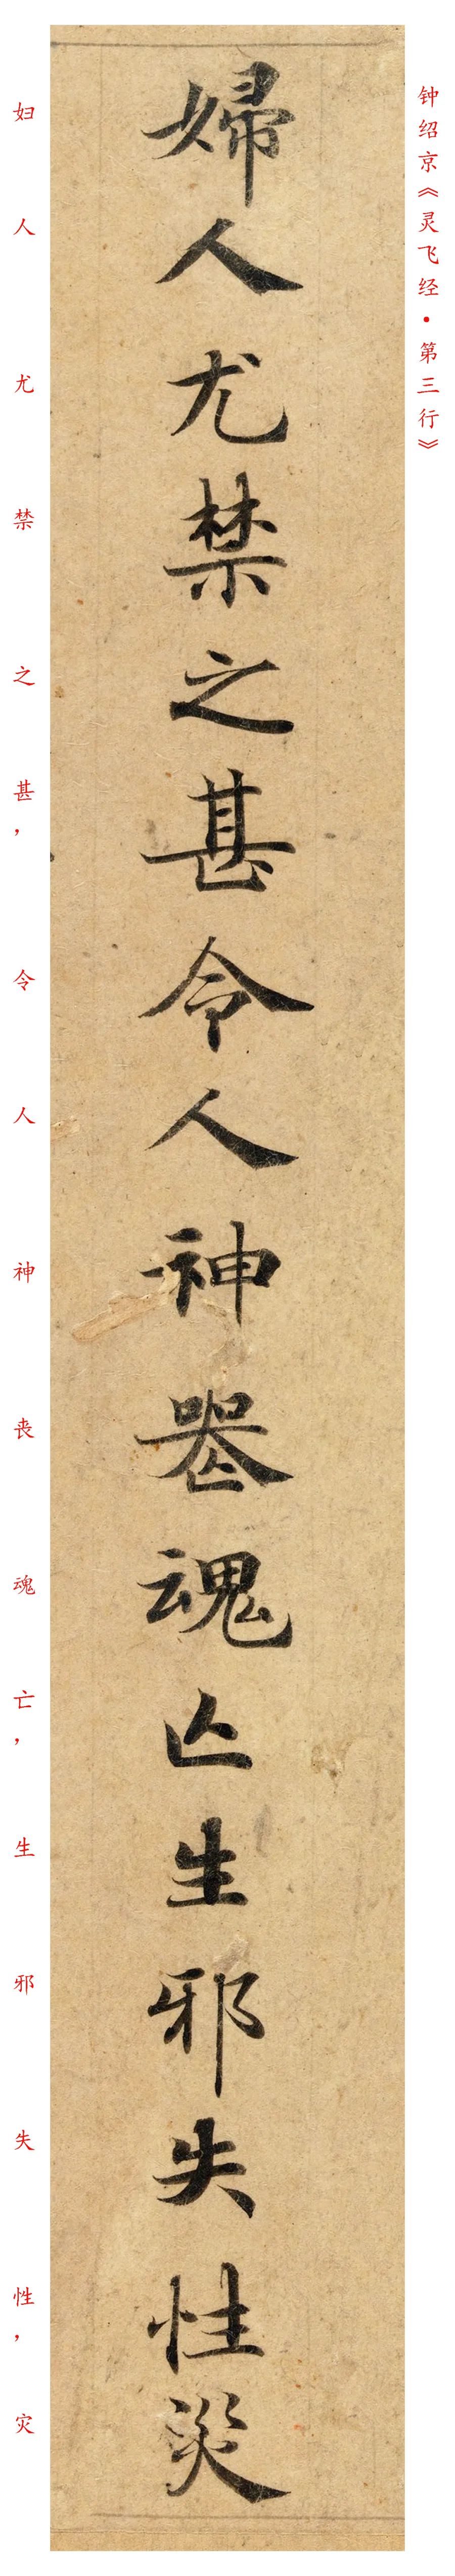 钟绍京《灵飞经·第三行》
婦人尤禁之甚令人神喪魂亡生邪失性災
妇人尤禁之甚，令人神丧魂亡，生邪失性，灾